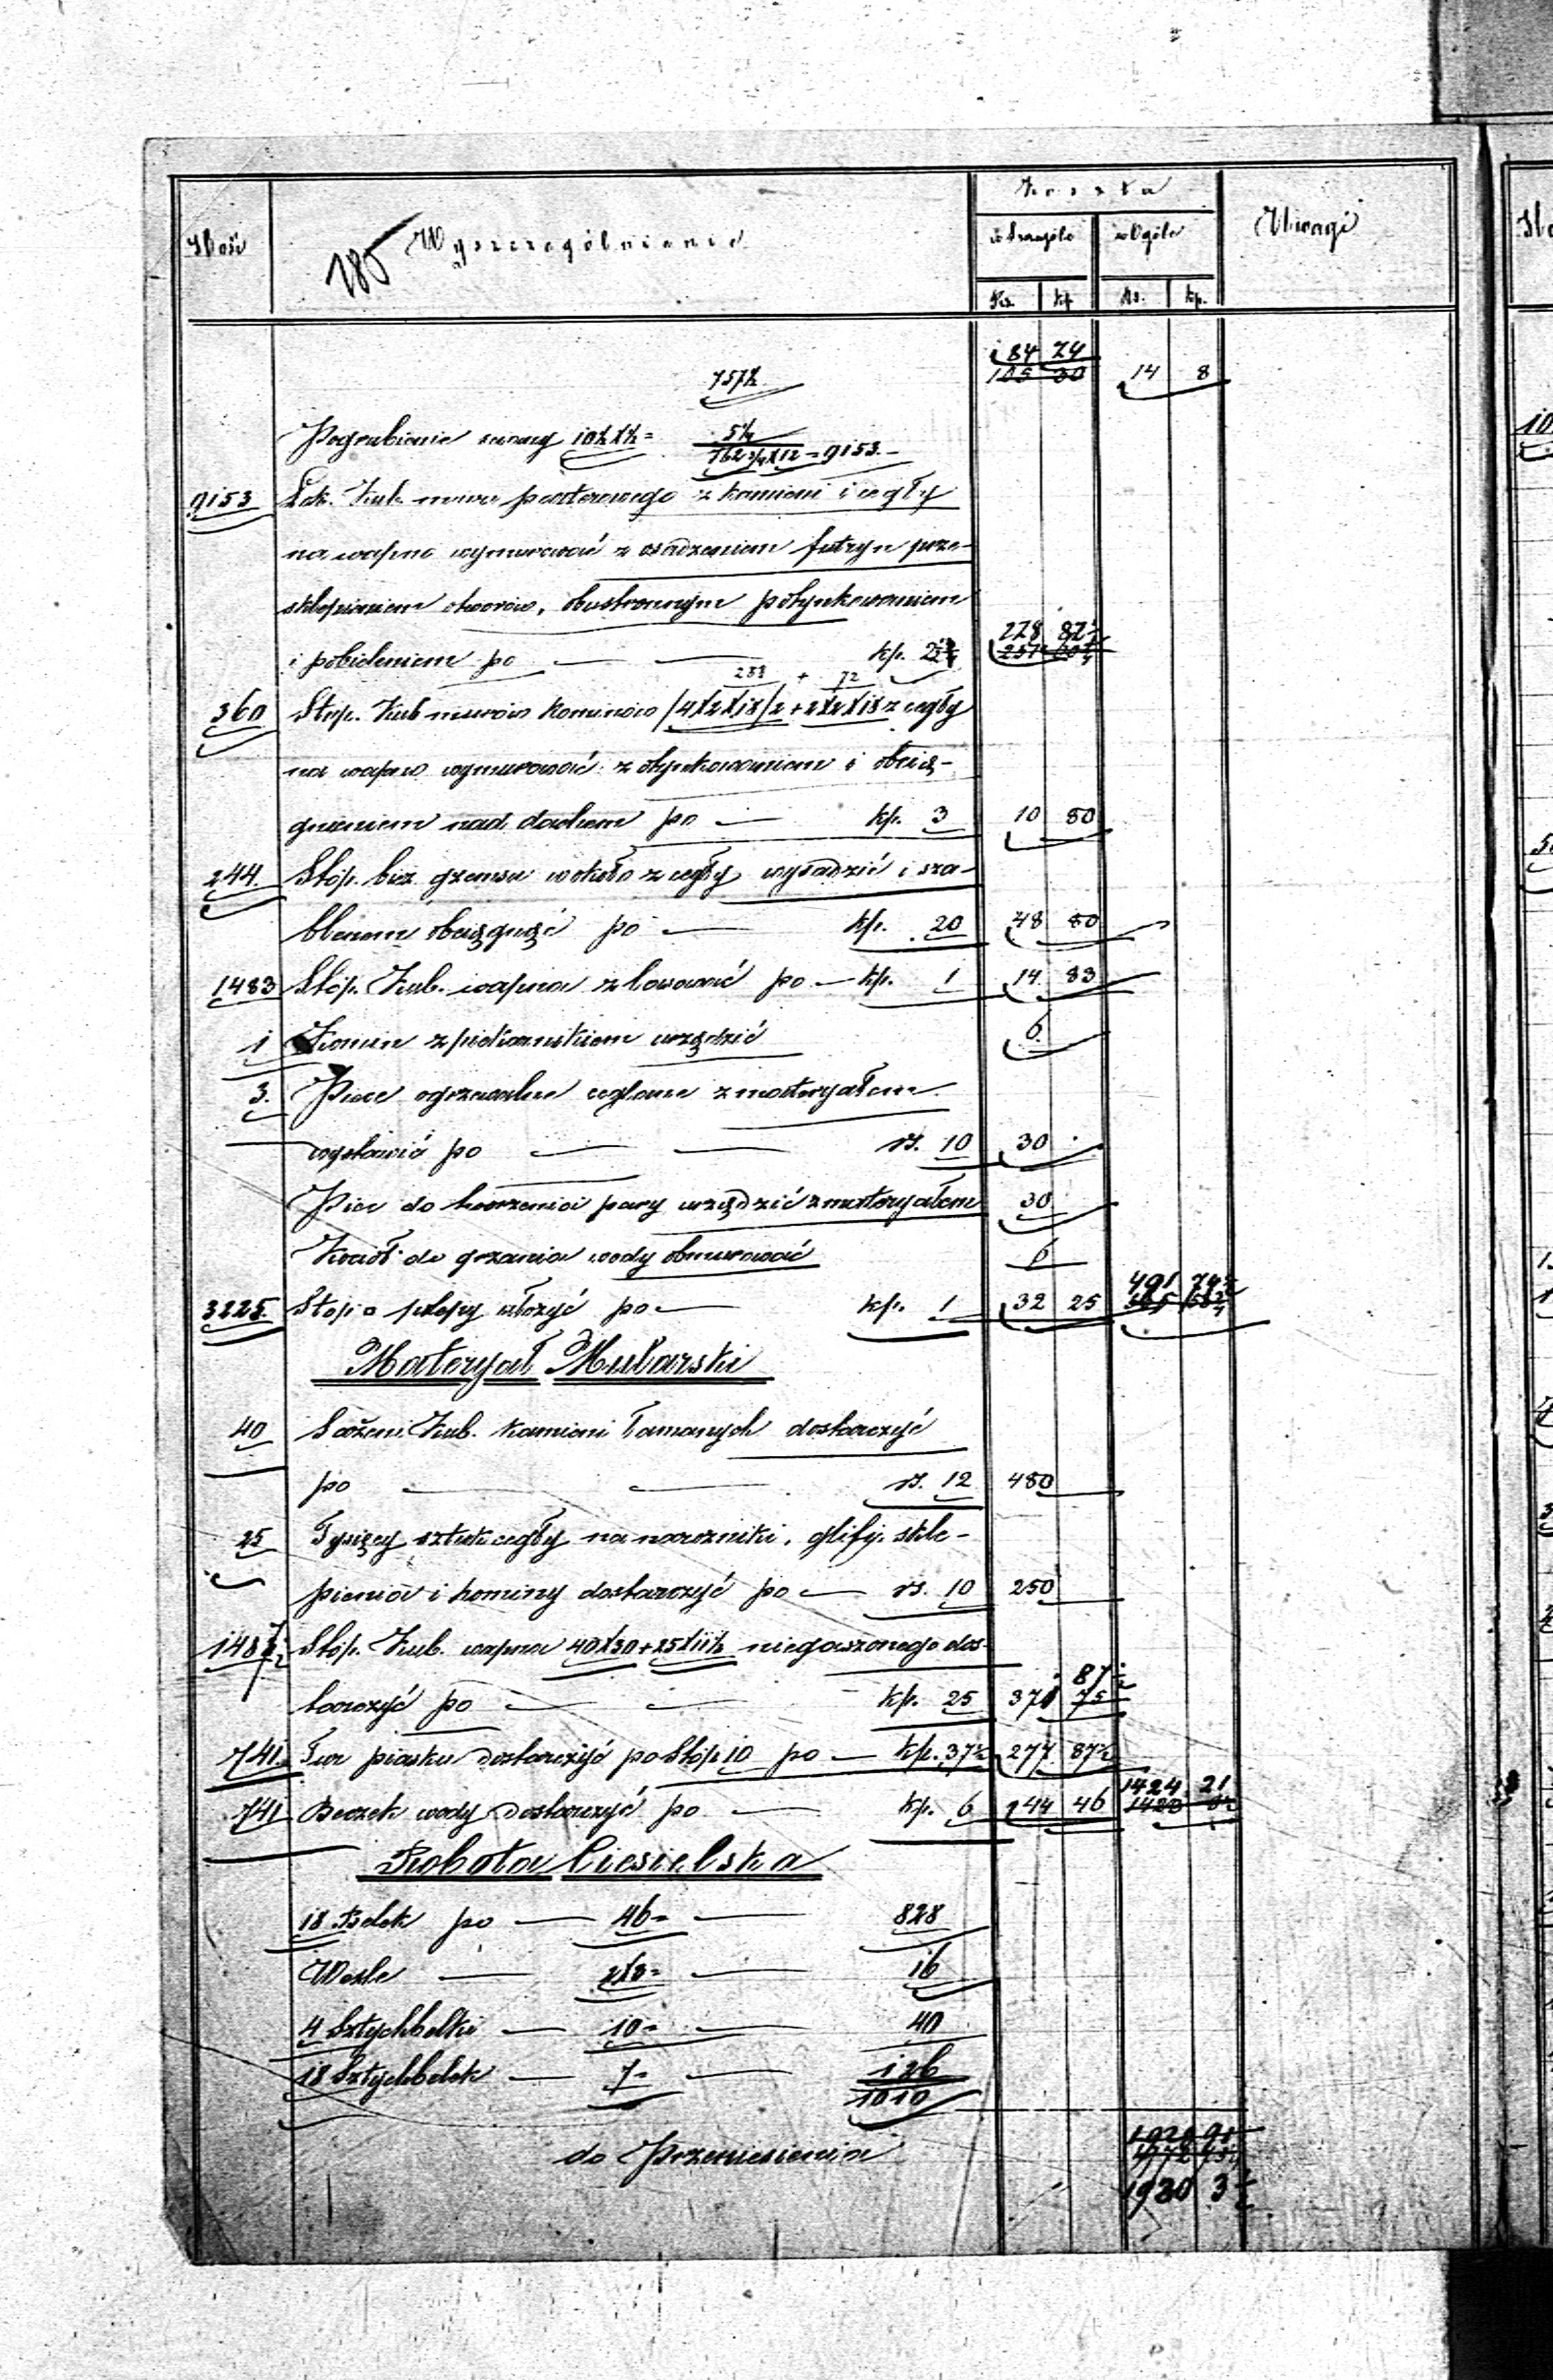 Ilość Wyszczególnienie Koszta Uwagi
185
w szczególe w Ogóle
Rs. Kp. Rs. Kp.
184 24
157½ 105 30 14 8
Pogrubienie 10½X½= 5¼
162¾X12=9153.-
9153 Łok. Kub. muru parterowego z kamieni i cegły
na wapno wymurować z osadzeniem futryn prze-
sklepieniem otworów, obustronnym potynkowaniem
228 82½
i pobieleniem po — — kp. 2½ 251
288 + 72
360 Stop. Kub murów kominów /4X2X18/2+2X2X18 z cegły
na wapno wymurować z otynkowaniem i obcią-
gnieniem nad dachem po — kp. 3 10 80
244. Stóp. bież. gzemsu wokoło z cegły wysadzić i sza-
blonem obciągnąć po — kp. 20 48 80
1483 Stóp. Kub. wapna zlasować po — kp. 1 14 83
1 Komin z piekarnikiem urządzić 6
3. Piece ogrzewalne ceglane z materyałem
wystawić po — — rs. 10 30
Piec do tworzenia pary urządzić z materyałem 30
Kocioł do grzania wody obmurować 6
491 74½
3225. Stop □ polepy ułożyć po — kp. 1 32 25
Materyał Mularski
40 Sążeni Kub. kamieni łamanych dostarczyć
po — — rs. 12 480
25 Tysięcy sztuk cegły na narożniki, glify, skle-
pienia i kominy dostarczyć po — rs. 10 250
1487½ Stóp. Kub. wapna 40X30+25X11½ niegaszonego dos-
87½
tarczyć po — — kp. 25 371 75
741. Fur piasku dostarczyć po Stóp 10 po — kp. 37½ 277 87½
1424 21
741 Beczek wody dostarczyć po — kp. 6 44 46 1423
Robota Ciesielska
18 Belek po — 46= — 828
Wexle — 2X8= — 16
4 Sztychbelki — 10= — 40
18 Sztychbelek — 7= — 126
1010
do Przeniesienia
1930 3½